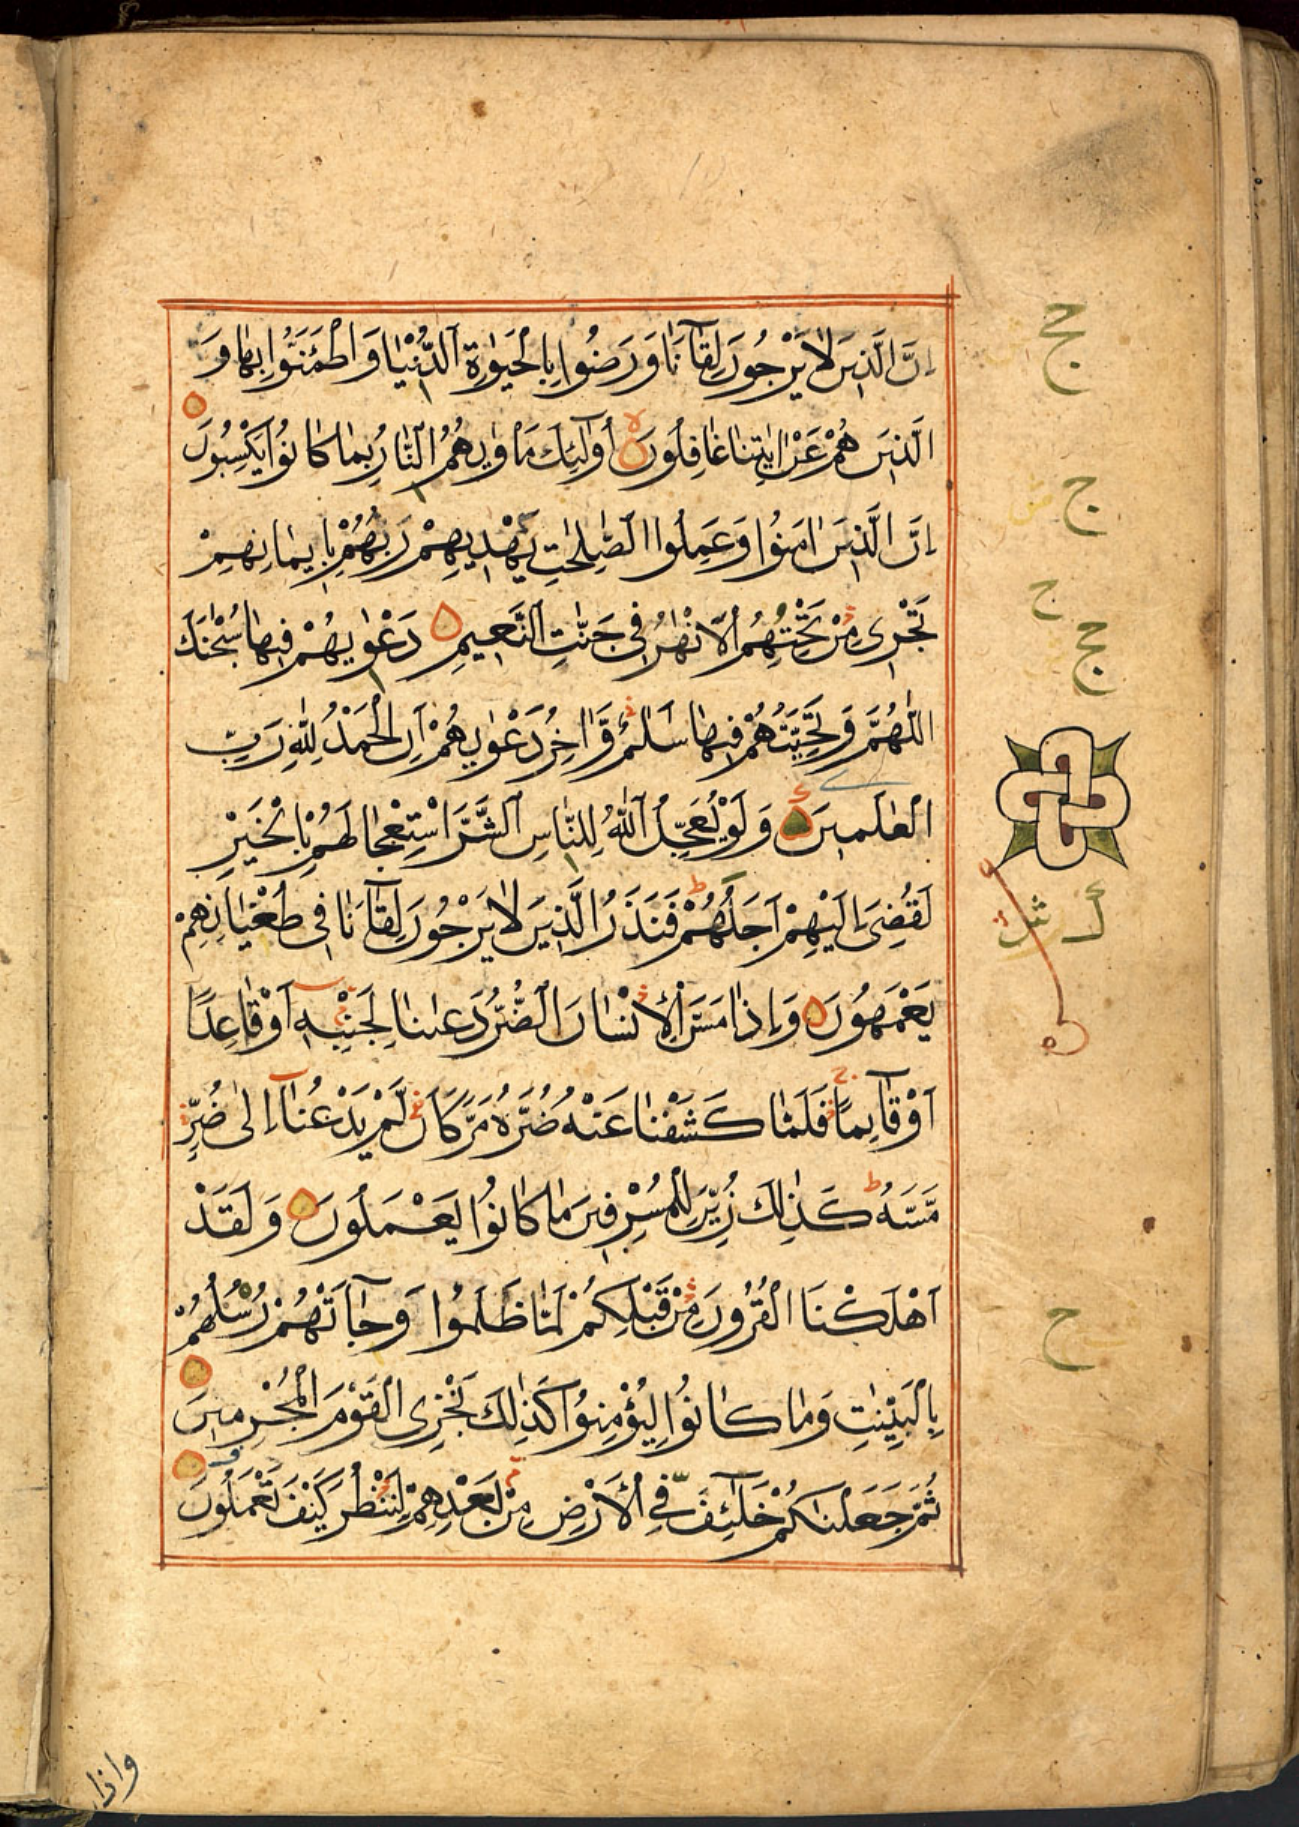 اِنَّ الَّذِيْنَ لَا يَرْجُوْنَ لِقَآءَنَا وَرَضُوْا بِالْحَيٰوةِ الدُّنْيَا وَاطْمَئَنُّوْا بِهَا وَ
الَّذِيْنَ هُمْ عَنْ اٰيٰتِنَا غَافِلُوْنَ اُولٰٓئِكَ مَاْوٰىهُمُ النَّارُ بِمَا كَانُوْا يَكْسِبُوْنَ
اِنَّ الَّذِيْنَ اٰمَنُوْا وَعَمِلُوا الصّٰلِحٰتِ يَهْدِيْهِمْ رَبُّهُمْ بِاِيْمَانِهِمْ
تَجْرِىْ مِنْ تَحْتِهِمُ الْاَنْهٰرُ فِىْ جَنّٰتِ النَّعِيْمِ دَعْوٰىهُمْ فِيْهَا سُبْحٰنَكَ
اللّٰهُمَّ وَتَحِيَّتُهُمْ فِيْهَا سَلٰمٌ وَّاٰخِرُ دَعْوٰىهُمْ اَنِ الْحَمْدُ لِلّٰهِ رَبِّ
الْعٰلَمِيْنَ وَلَوْ يُعَجِّلُ اللّٰهُ لِلنَّاسِ الشَّرَّ اسْتِعْجَالَهُمْ بِالْخَيْرِ
لَقُضِىَ اِلَيْهِمْ اَجَلُهُمْ فَنَذَرُ الَّذِيْنَ لَا يَرْجُوْنَ لِقَآءَنَا فِىْ طُغْيَانِهِمْ
يَعْمَهُوْنَ وَاِذَا مَسَّ الْاِنْسَانَ الضُّرُّ دَعَانَا لِجَنْۢبِهٖٓ اَوْ قَاعِدًا
اَوْ قَآئِمًا فَلَمَّا كَشَفْنَا عَنْهُ ضُرَّهٗ مَرَّ كَاَنْ لَّمْ يَدْعُنَآ اِلٰى ضُرٍّ
مَّسَّهٗ كَذٰلِكَ زُيِّنَ لِلْمُسْرِفِيْنَ مَا كَانُوْا يَعْمَلُوْنَ وَلَقَدْ
اَهْلَكْنَا الْقُرُوْنَ مِنْ قَبْلِكُمْ لَمَّا ظَلَمُوْا وَجَآءَتْهُمْ رُسُلُهُمْ
بِالْبَيِّنٰتِ وَمَا كَانُوْا لِيُؤْمِنُوْا كَذٰلِكَ نَجْزِى الْقَوْمَ الْمُجْرِمِيْنَ
ثُمَّ جَعَلْنَاكُمْ خَلٰٓئِفَ فِى الْاَرْضِ مِنْۢ بَعْدِهِمْ لِنَنْظُرَ كَيْفَ تَعْمَلُوْنَ
واذا